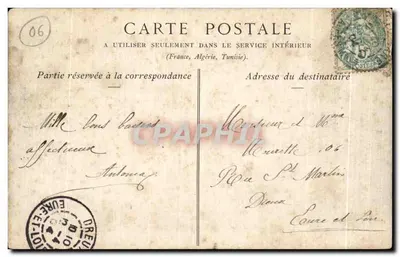 06
CARTE POSTALE
A UTILISER SEULEMENT DANS LE SERVICE INTÉRIEUR
(France, Algérie, Tunisie).
Partie réservée à la correspondance
Adresse du destinataire
Mille bons baisers
affectueux
Antonia
CPARAMA
Monsieur et Mme
Rue St Martin
Dreux
Eure et Loir
DREUX
EURE-ET-LOIR